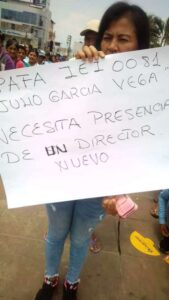 PAFA IEI 0081.
JULIO GARCIA VEGA
NECESITA PRESENCIA
DE UN DIRECTOR
NUEVO